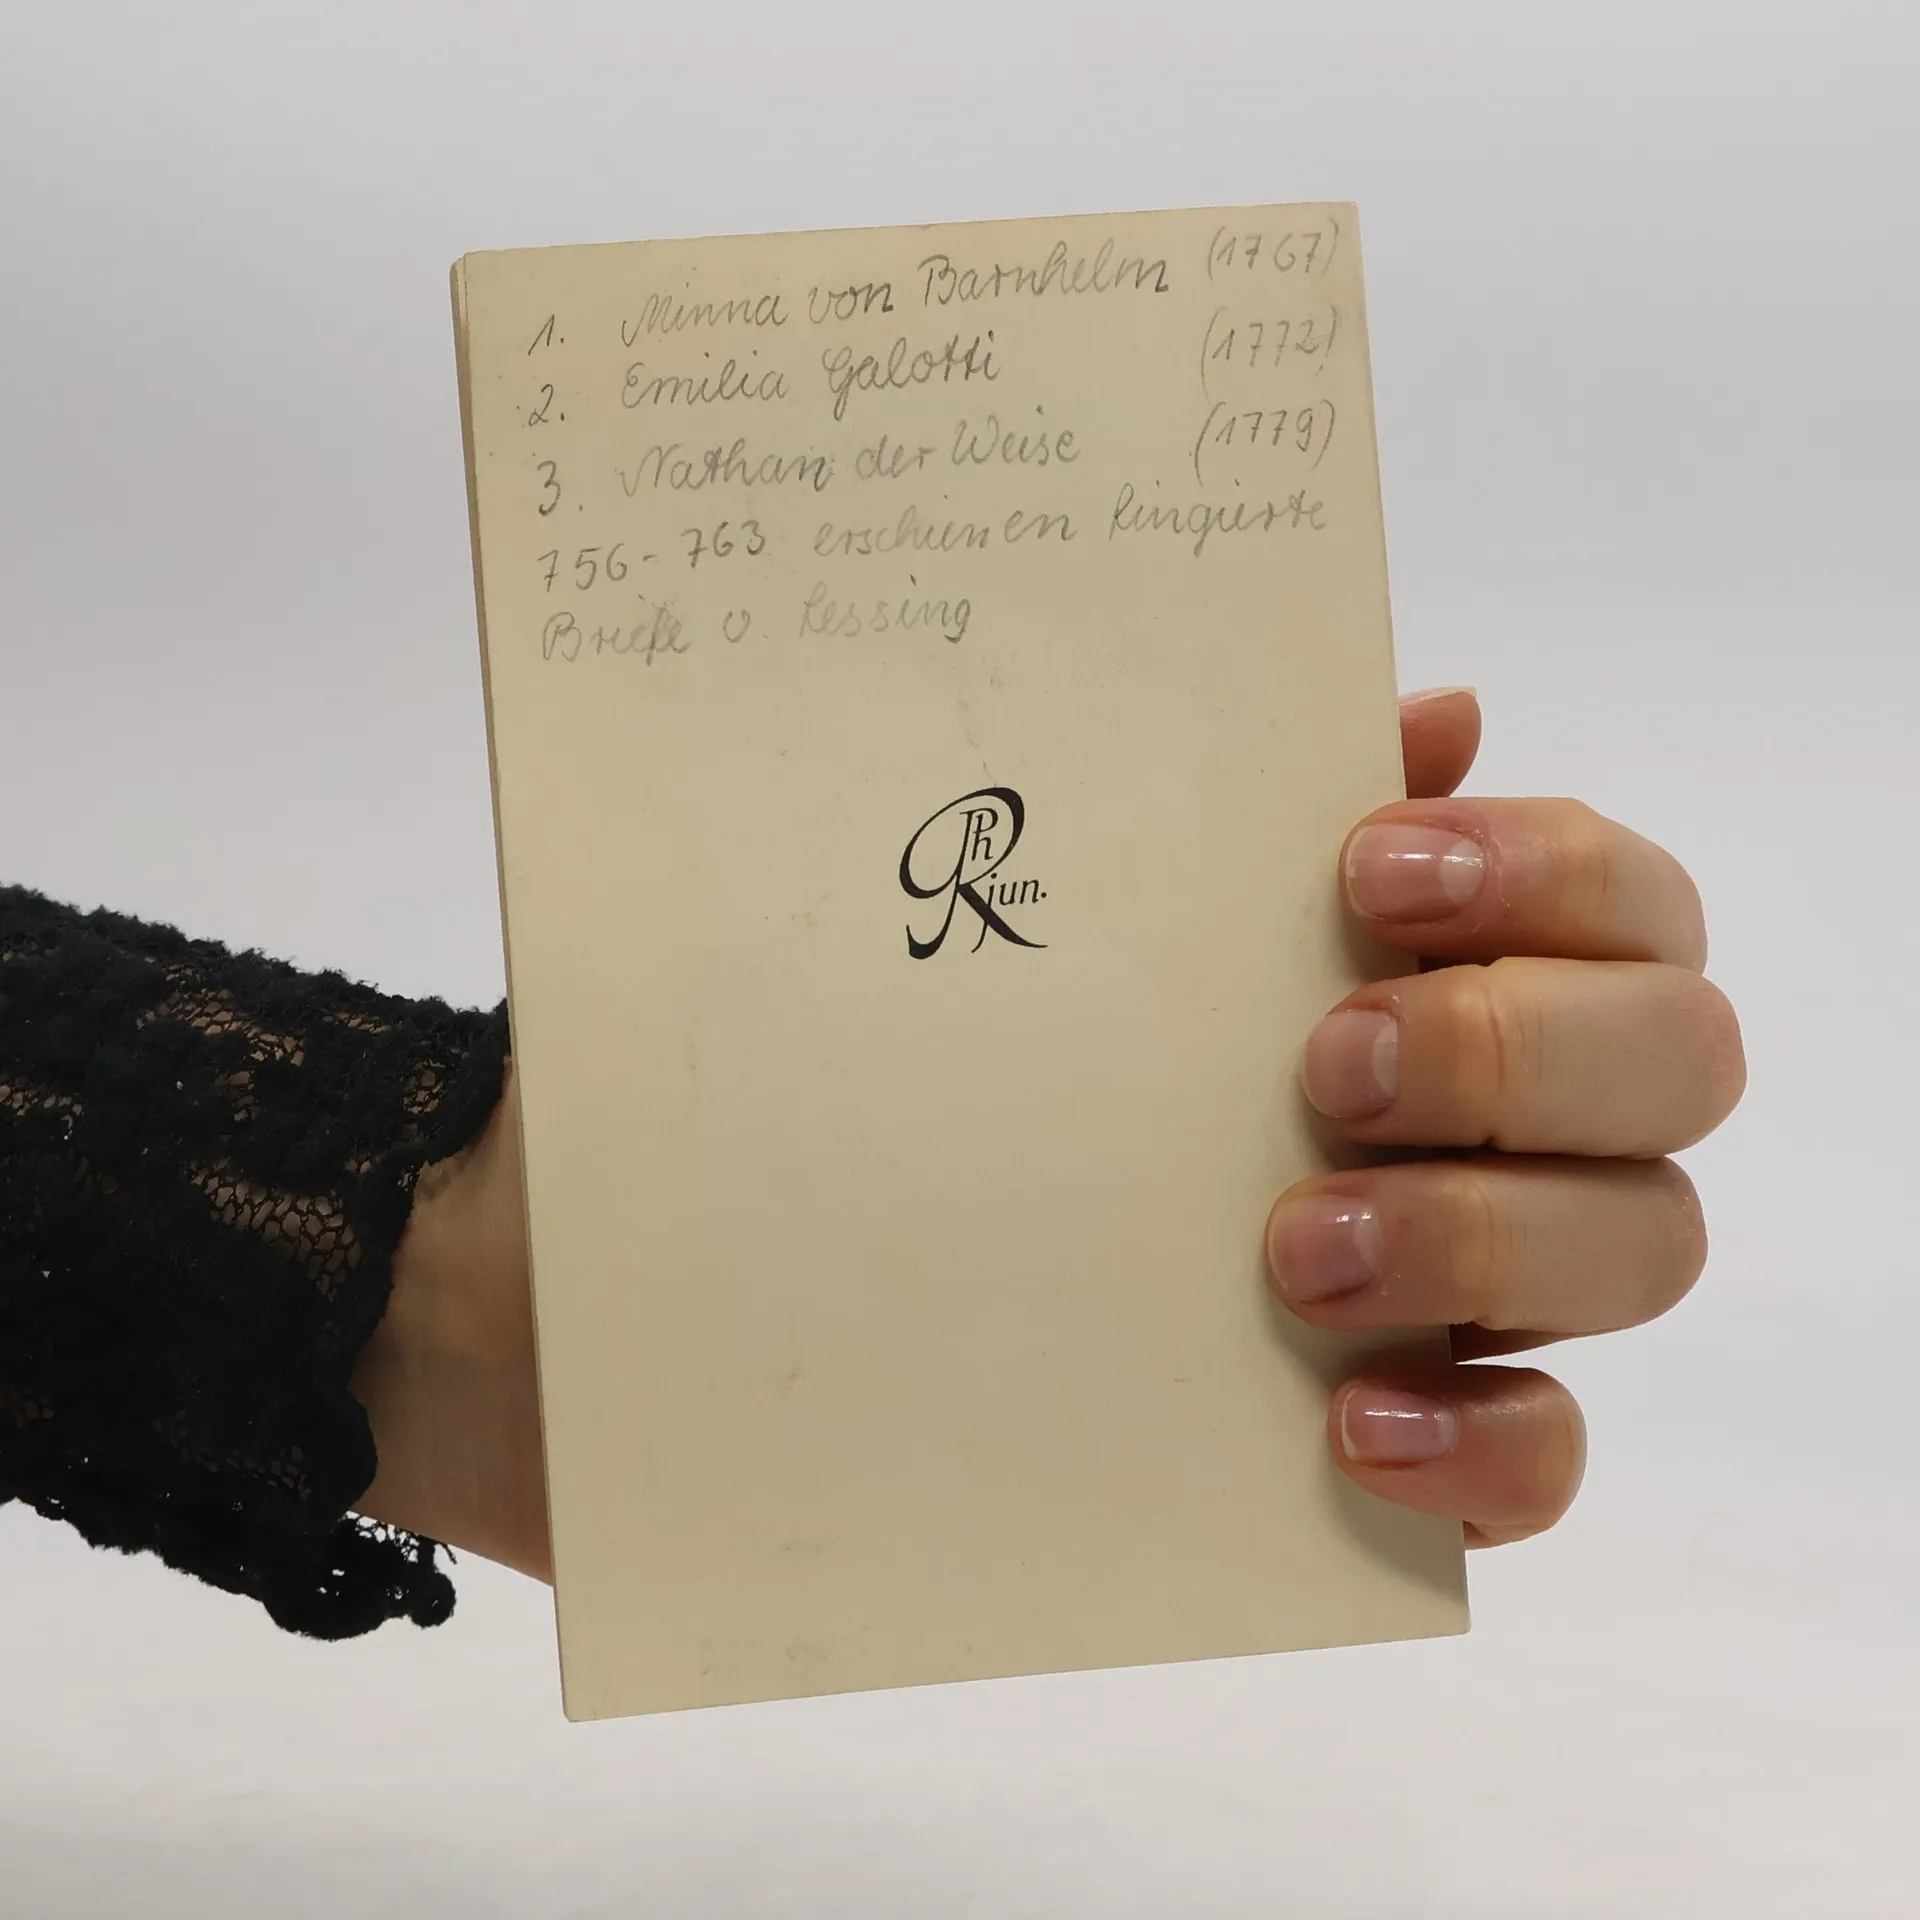 1. Minna von Barnhelm (1767)
2. Emilia Galotti (1772)
3. Nathan der Weise (1779)
756-763 erschienen fingierte
Briefe v. Lessing
Ph
R jun.